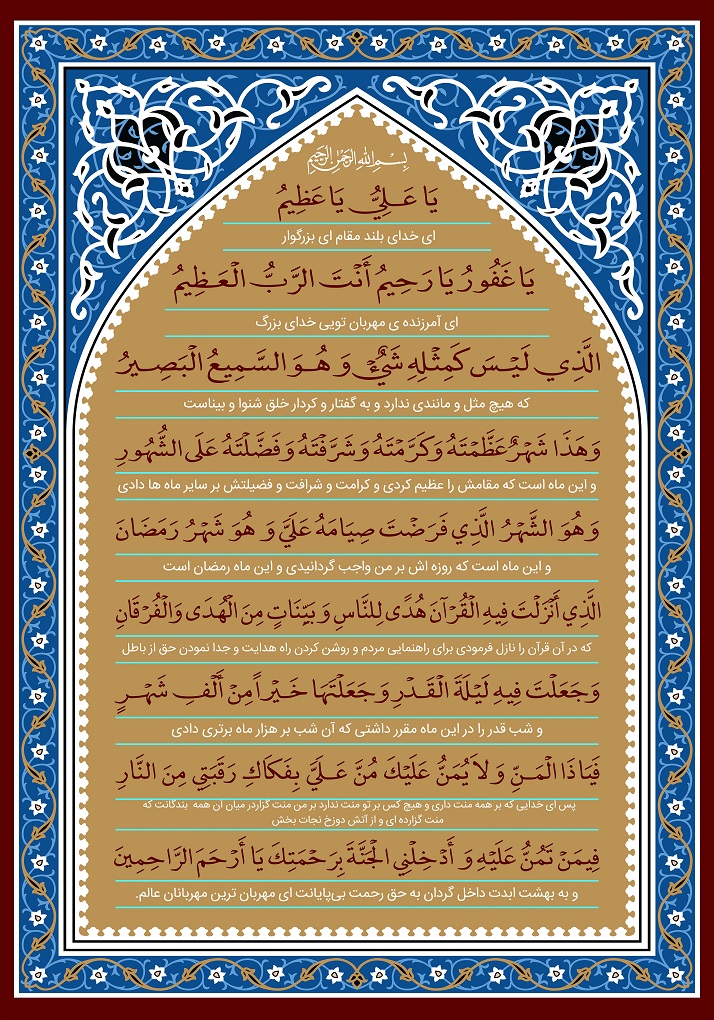 بسم الله الرحمن الرحیم
يَا عَـلِيُّ يَا عَظِيمُ
ای خدای بلند مقام ای بزرگوار
يَا غَفُورُ يَا رَحِيمُ أَنْتَ الرَّبُّ الْعَظِيمُ
ای آمرزنده ی مهربان تویی خدای بزرگ
الَّذِي لَيْسَ كَمِثْلِهِ شَيْءٌ وَ هُوَ السَّمِيعُ الْبَصِيرُ
که هیچ مثل و مانندی ندارد و به گفتار و کردار خلق شنوا و بیناست
وَ هَذَا شَهْرٌ عَظَّمْتَهُ وَ كَرَّمْتَهُ وَ شَرَّفْتَهُ وَ فَضَّلْتَهُ عَلَى الشُّهُورِ
و این ماه است که مقامش را عظیم کردی و کرامت و شرافت و فضیلتش بر سایر ماه ها دادی
وَ هُوَ الشَّهْرُ الَّذِي فَرَضْتَ صِيَامَهُ عَلَيَّ وَ هُوَ شَهْرُ رَمَضَانَ
و این ماه است که روزه اش بر من واجب گردانیدی و این ماه رمضان است
الَّذِي أَنْزَلْتَ فِيهِ الْقُرْآنَ هُدًى لِلنَّاسِ وَ بَيِّنَاتٍ مِنَ الْهُدَى وَالْفُرْقَانِ
که در آن قرآن را نازل فرمودی برای راهنمایی مردم و روشن کردن راه هدایت و جدا نمودن حق از باطل
وَ جَعَلْتَ فِيهِ لَيْلَةَ الْقَدْرِ وَ جَعَلْتَهَا خَيْراً مِنْ أَلْفِ شَهْرٍ
و شب قدر را در این ماه مقرر داشتی که آن شب بر هزار ماه برتری دادی
فَيَا ذَا الْمَنِّ وَ لاَ يُمَنُّ عَلَيْكَ مُنَّ عَلَيَّ بِفَكَاكِ رَقَبَتِي مِنَ النَّارِ
پس ای خدایی که بر همه منت داری و هیچ کس بر تو منت ندارد بر من منت گزاردر میان آن همه بندگانت که
منت گزارده ای و از آتش دوزخ نجات بخش
فِيمَنْ تَمُنُّ عَلَيْهِ وَ أَدْخِلْنِي الْجَنَّةَ بِرَحْمَتِكَ يَا أَرْحَمَ الرَّاحِمِينَ
و به بهشت ابدت داخل گردان به حق رحمت بی‌پایانت ای مهربان ترین مهربانان عالم.